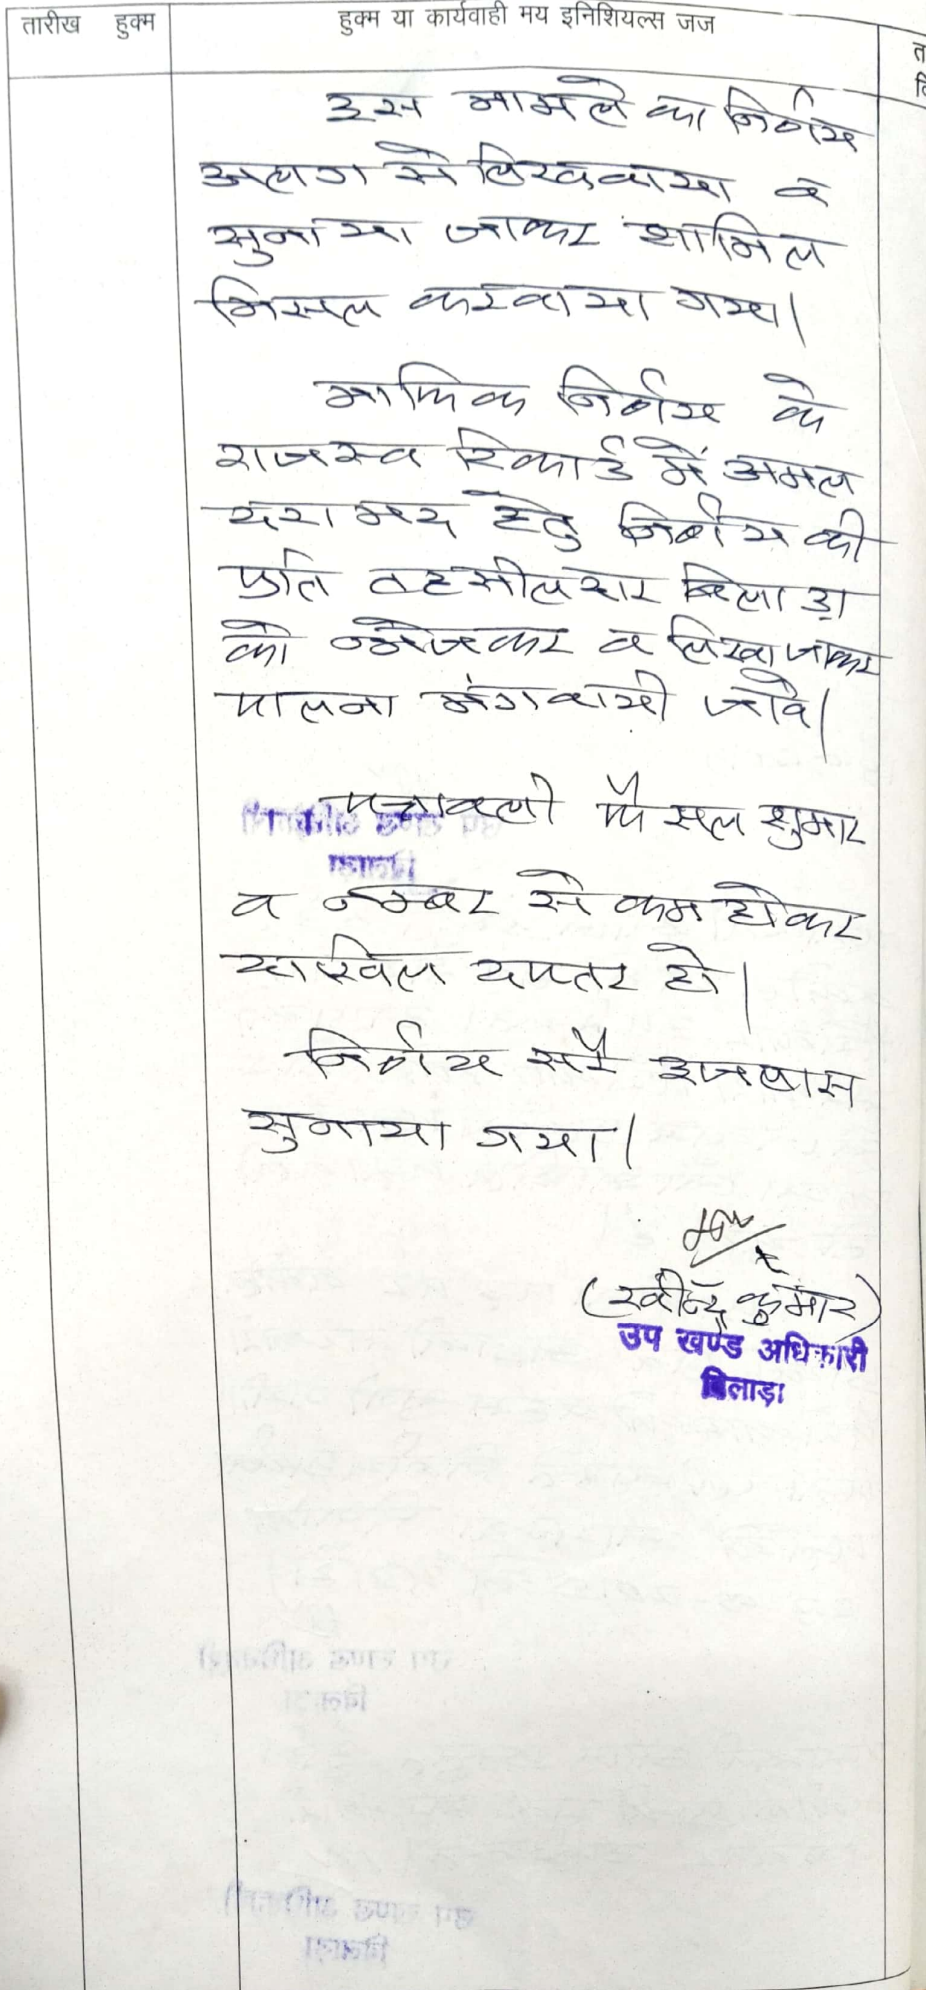 तारीख हुक्म
हुक्म या कार्यवाही मय इनिशियल्स जज
इस मामले का निर्णय
अलग से लिखवाया व
सुनाया जाकर शामिल
मिसल करवाया गया।
माफिक निर्णय के
राजस्व रिकार्ड में अमल
दरामद हेतु निर्णय की
प्रति तहसीलदार बिलाड़ा
को भेजकर व लिखा जाकर
पालना मंगवायी जावे।
पत्रावली फैसल शुमार
व नम्बर से कम होकर
दाखिल दफ्तर हो।
निर्णय सरे इजलास
सुनाया गया।
(रवीन्द्र कुमार)
उप खण्ड अधिकारी
बिलाड़ा